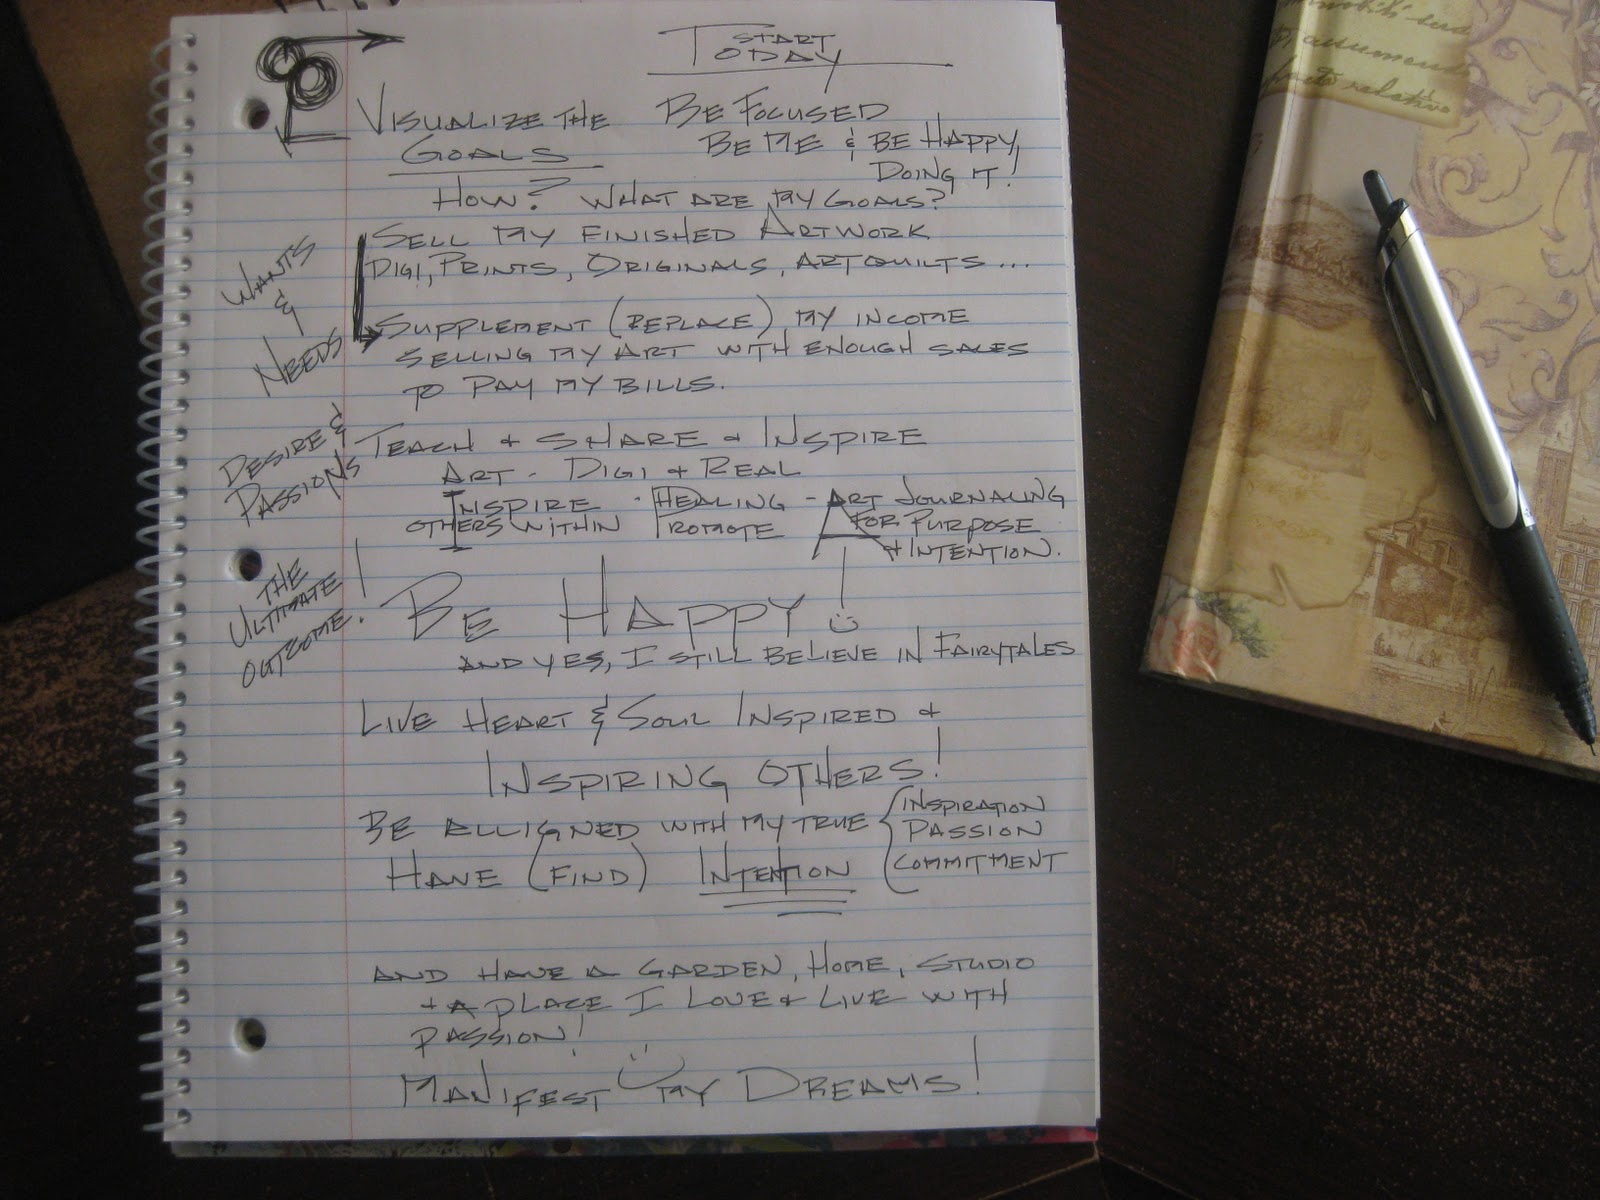 START
TODAY
VISUALIZE THE
GOALS
BE FOCUSED
BE ME & BE HAPPY,
DOING IT!
HOW? WHAT ARE MY GOALS?
WANTS
&
NEEDS
SELL MY FINISHED ARTWORK
DIGI, PRINTS, ORIGINALS, ARTQUILTS...
SUPPLEMENT (REPLACE) MY INCOME
SELLING MY ART WITH ENOUGH SALES
TO PAY MY BILLS.
DESIRE &
PASSIONS
TEACH & SHARE & INSPIRE
ART - DIGI & REAL
INSPIRE
OTHERS WITHIN
- HEALING
PROMOTE
- ART JOURNALING
FOR PURPOSE
& INTENTION.
THE
ULTIMATE
OUTCOME!
BE HAPPY!
AND YES, I STILL BELIEVE IN FAIRYTALES
LIVE HEART & SOUL INSPIRED &
INSPIRING OTHERS!
BE ALLIGNED WITH MY TRUE
INSPIRATION
PASSION
COMMITMENT
HAVE (FIND) INTENTION
AND HAVE A GARDEN, HOME, STUDIO
& A PLACE I LOVE & LIVE WITH
PASSION!
MANIFEST MY DREAMS!